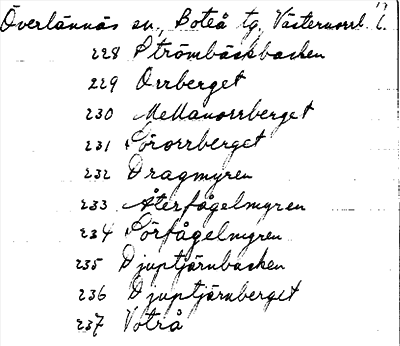 Överlännäs sn, Boteå tg, Västernorrl. l.
228 Strömbäcksbacken
229 Orrberget
230 Mellanorrberget
231 Sörorrberget
232 Dragmyren
233 Återfågelmyren
234 Sörfågelmyren
235 Djuptjärnbacken
236 Djuptjärnberget
237 Voträ